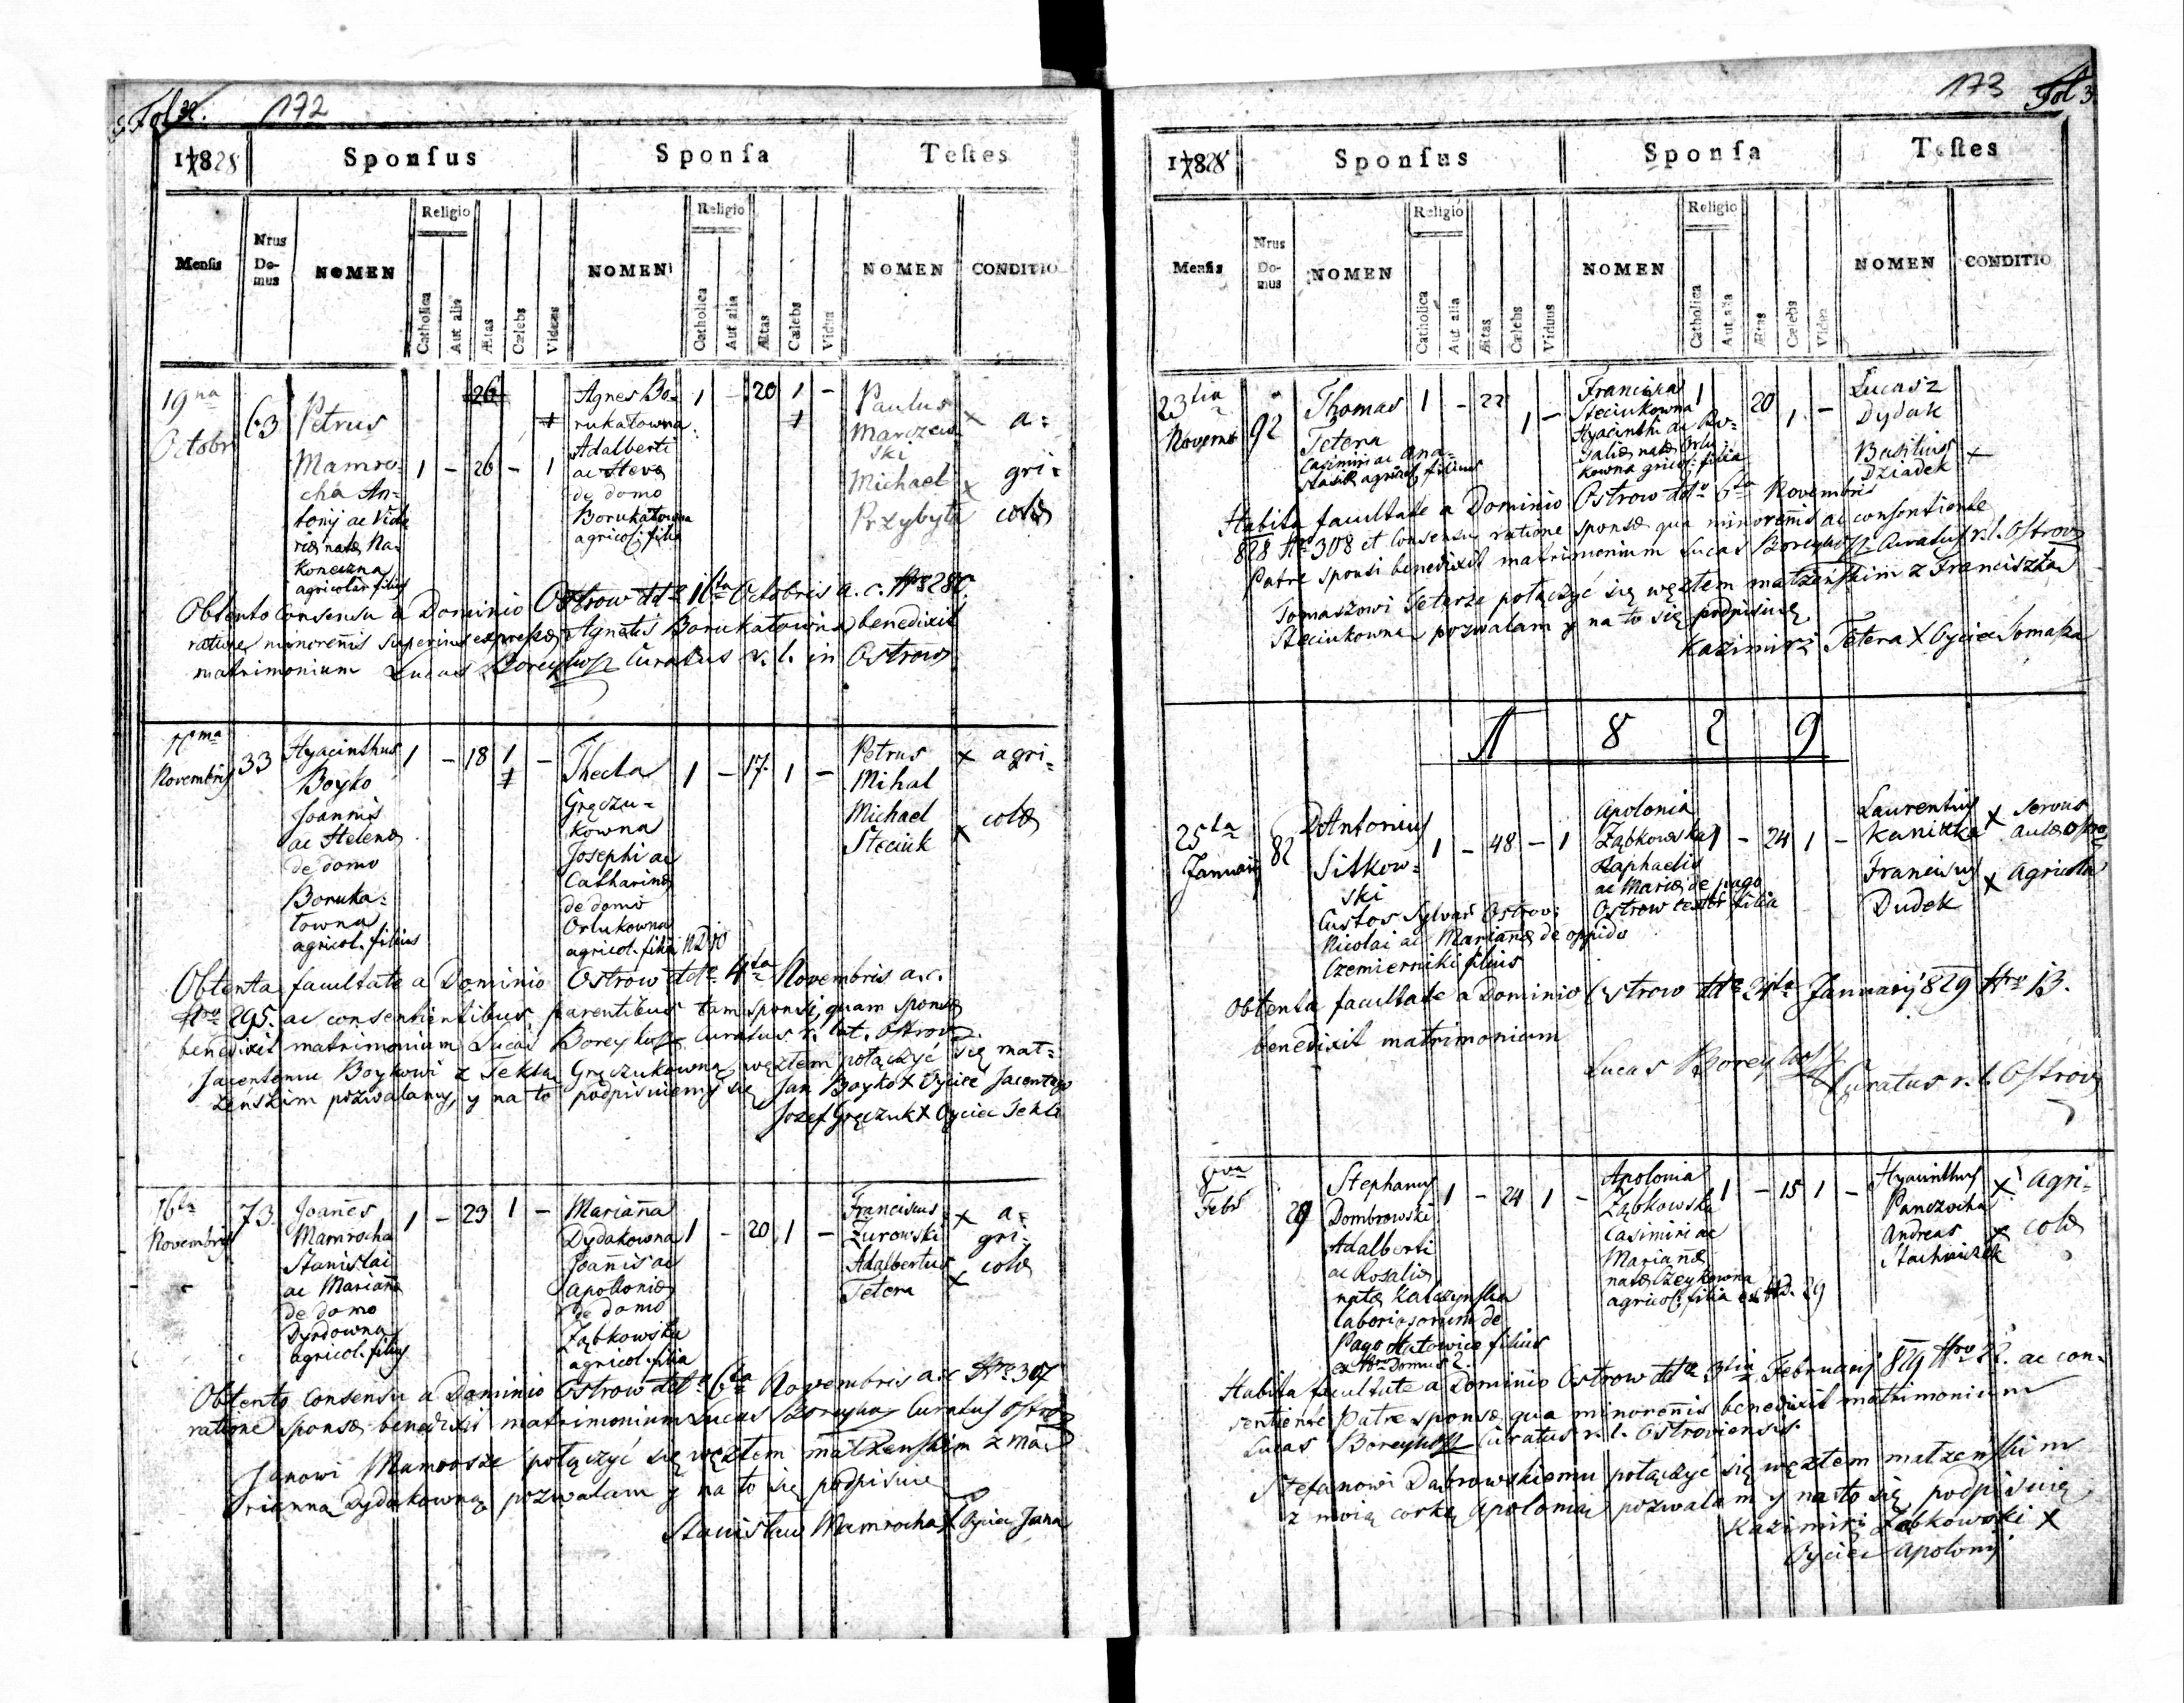 Fol 32.
172
1828
Sponſus
Sponſa
Teſtes
Menſis
Nrus Domus
NOMEN
Religio
Catholica
Aut alia
Ætas
Cælebs
Viduus
NOMEN
Religio
Catholica
Aut alia
Ætas
Cælebs
Vidua
NOMEN
CONDITIO
19na
Octobr
63
Petrus
Mamro-
cha An-
tonij ac Victo
riæ natæ Na-
koneczna
agricolar filius
1 - 26 - 1
Agnes Bo-
rukatowna
Adalberti
ac Hevæ
de domo
Borukatowna
agricol: filia
1 - 20 1 -
Paulus
Marczew
ski
Michael
Przybyła
x
x
a:
gri:
colæ
Obtento consensu a Dominio Ostrow ddto 16ta Octobris a. c. Nro 286.
ratione minorenis superius expressæ Agnetis Borukatowna benedixit
matrimonium Lucas Boreykosz Curatus r. l. in Ostrow
Novembris
33
Hyacinthus
Boyko
Joannis
ac Helenæ
de domo
Boruka-
towna
agricol. filius
1 - 18 1 -
Thecla
Gręczu-
kowna
Josephi ac
Catharinæ
de domo
Orlukowna
agricol. filia
1 - 17. 1 -
Petrus
Mihal
Michael
Steciuk
x
x
agri-
colæ
Obtenta facultate a Dominio Ostrow ddto 4ta Novembris a. c.
Nro 295. ac consentientibus parentibus tam sponsi, quam sponsæ
benedixit matrimonium Lucas Boreykosz Curatus r. lat. Ostrov.
Jacentemu Boykowi z Teklą Gręczukowną węzłem połączyć się mał-
żeńskim pozwalamy, y na to podpisuiemy się Jan Boyko x Oyciec Jacentego
Jozef Gręczuk x Oyciec Tekli
16ta
Novembris
73
Joanes
Mamrocha
Stanislai
ac Mariana
de domo
Dyrdowna
agricol. filius
1 - 23 1 -
Mariana
Dydakowna
Joannis ac
Apolloniæ
de domo
Ząbkowska
agricol. filia
1 - 20 1 -
Franciscus
Zurowski
Adalbertus
Tetera
x
x
a-
gri-
colæ
Obtento consensu a Dominio Ostrow ddto 6ta Novembris a. c Nro 307
ratione sponsæ benedixit matrimonium Lucas Boreykosz Curatus Ostrov
Janowi Mamrosze połączyć się węzłem małżenskim z Ma-
rianną Dydakowną pozwalam y na to się podpisuie
Stanisław Mamrocha x Oyciec Jana
173
Fol 3
1828
Sponſus
Sponſa
Teſtes
Menſis
Nrus Domus
NOMEN
Religio
Catholica
Aut alia
Ætas
Cælebs
Viduus
NOMEN
Religio
Catholica
Aut alia
Ætas
Cælebs
Vidua
NOMEN
CONDITIO
23tia
Novemb
92
Thomas
Tetera
Casimiri ac Ana-
stasiæ agricol filius
1 - 22 1 -
Franciszka
Steciukowna
Hyacinthi ac Ro-
saliæ natæ Orlu-
kowna gricol: filia
1 20 1 -
Lucasz
Dydak
Basilius
Dziadek
x
Habita facultate a Dominio Ostrow ddto 6ta Novembris
828 Nro 308 et Consensu ratione sponsæ qua minorenis ac consentiente
Patre sponsi benedixit matrimonium Lucas Boreykosz Curatus r. l. Ostrov
Tomaszowi Teterze połączyć się węzłem małżeńskim z Franciszką
Steciukowną pozwalam y na to się podpisuię
Kazimirz Tetera x Oyciec Tomasza
1 8 2 9
25ta
Januarij
82
D. Antonius
Sitkow-
ski
Custos Sylvar Ostrov:
Nicolai ac Marianæ de oppido
Czemierniki filius
1 - 48 - 1
Apolonia
Ząbkowska
Raphaelis
ac Mariæ de pago
Ostrow textor filia
1 - 24 1 -
Laurentius
Kanitka
Franciscus
Dudek
x
x
servus
aulæ Ostro
agricola
Obtenta facultate a Dominio Ostrow ddto 24ta Januarij 829 Nro 13.
benedixit matrimonium
Lucas Boreykosz
Curatus r. l. Ostrov
8va
Febr
29
Stephanus
Dombrowski
Adalberti
ac Rosaliæ
natæ Kalczynska
laboriosorum de
Pago Statowice filius
ex Nro Domus 2.
1 - 24 1 -
Apolonia
Ząbkowska
Casimiri ac
Marianæ
natæ Zeykowna
agricol: filia ex ND. 29
1 - 15 1 -
Hyacinthus
Panczocha
Andreas
Stachniczek
x
x
agri-
colæ
Habita facultate a Dominio Ostrow ddto 3tia Februarij 829 Nro 22. ac con-
sentiente Patre sponsæ qua minorenis benedixit matrimonium
Lucas Boreykosz Curatus r. l. Ostroviensis.
Stefanowi Dąbrowskiemu połączyć się węzłem małzeńskim
z moią corką Apolonią pozwalam y na to się podpisuię
Kazimirz Ząbkowski x
Oyciec Apolonij